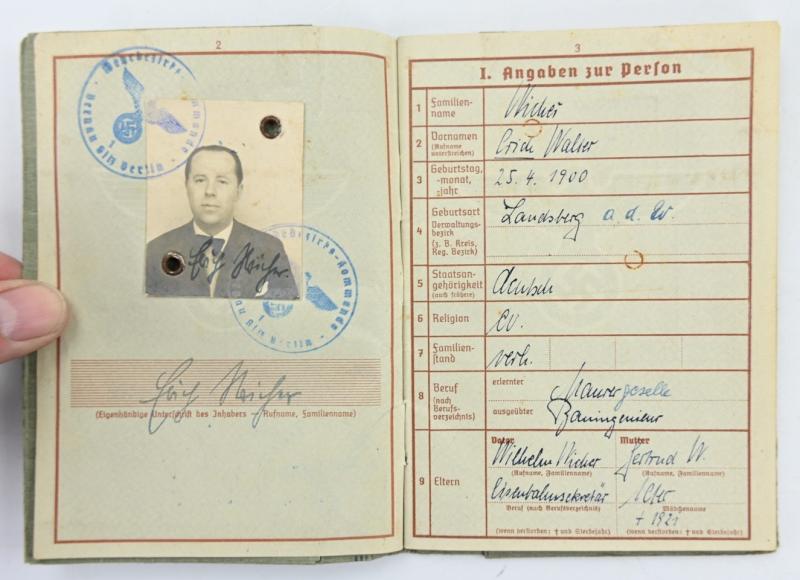 2
Wehrbezirks-Kommando
Bernau bei Berlin
1
Erich Wicher
Wehrbezirks-Kommando
Bernau bei Berlin
1
Erich Wicher
(Eigenhändige Unterschrift des Inhabers – Rufname, Familienname)
3
I. Angaben zur Person
1 Familien-
name
Wicher
2 Vornamen
(Rufname
unterstreichen)
Erich Walter
3 Geburtstag,
-monat,
-jahr
25. 4. 1900
4 Geburtsort
Verwaltungs-
bezirk
(z. B. Kreis,
Reg. Bezirk)
Landsberg a. d. W.
5 Staatsan-
gehörigkeit
(auch frühere)
deutsch
6 Religion
ev.
7 Familien-
stand
verh.
8 Beruf
(nach
Berufs-
verzeichnis)
erlernter
Maurergeselle
ausgeübter
Bauingenieur
9 Eltern
Vater
Wilhelm Wicher
(Rufname, Familienname)
Eisenbahnsekretär
Beruf (nach Berufsverzeichnis)
(wenn verstorben: † und Sterbejahr)
Mutter
Gertrud W.
(Rufname, Familienname)
Mädchenname
† 1921
(wenn verstorben: † und Sterbejahr)